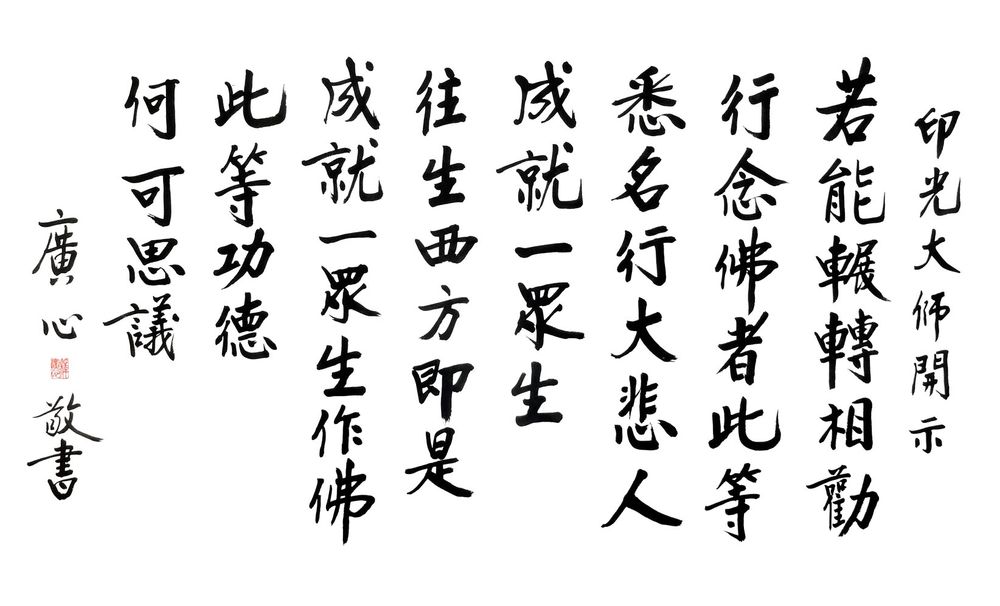 印光大师開示
若能輾轉相勸
行念佛者此等
悉名行大悲人
成就一眾生
往生西方即是
成就一眾生作佛
此等功德
何可思議
廣心
敬書